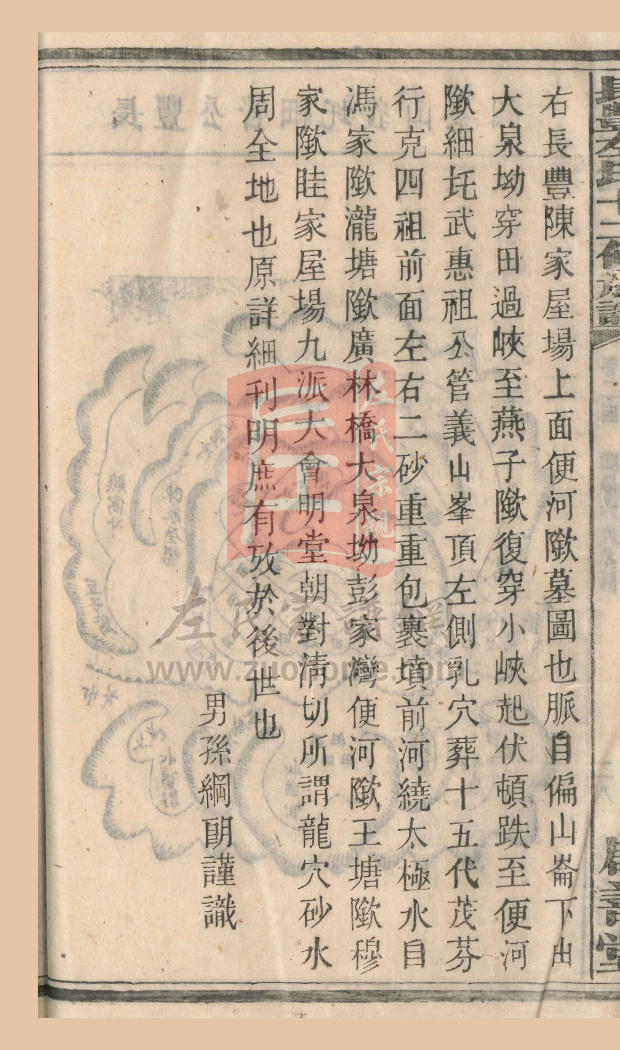 右長豐陳家屋場上面便河墩墓圖也脈自偏山崙下出
大泉坳穿田過峽至燕子墩復穿小峽起伏頓跌至便河
墩細坉武惠祖公管義山峯頂左側乳穴葬十五代茂芬
行克四祖前面左右二砂重重包裹墳前河繞太極水自
馮家墩瀧塘墩廣林橋大泉坳彭家灣便河墩王塘墩穆
家墩眭家屋場九派大會明堂朝對清切所謂龍穴砂水
周全地也原詳細刊明庶有攷於後世也
男孫綱朗謹識
左氏家譜
www.zuohome.com